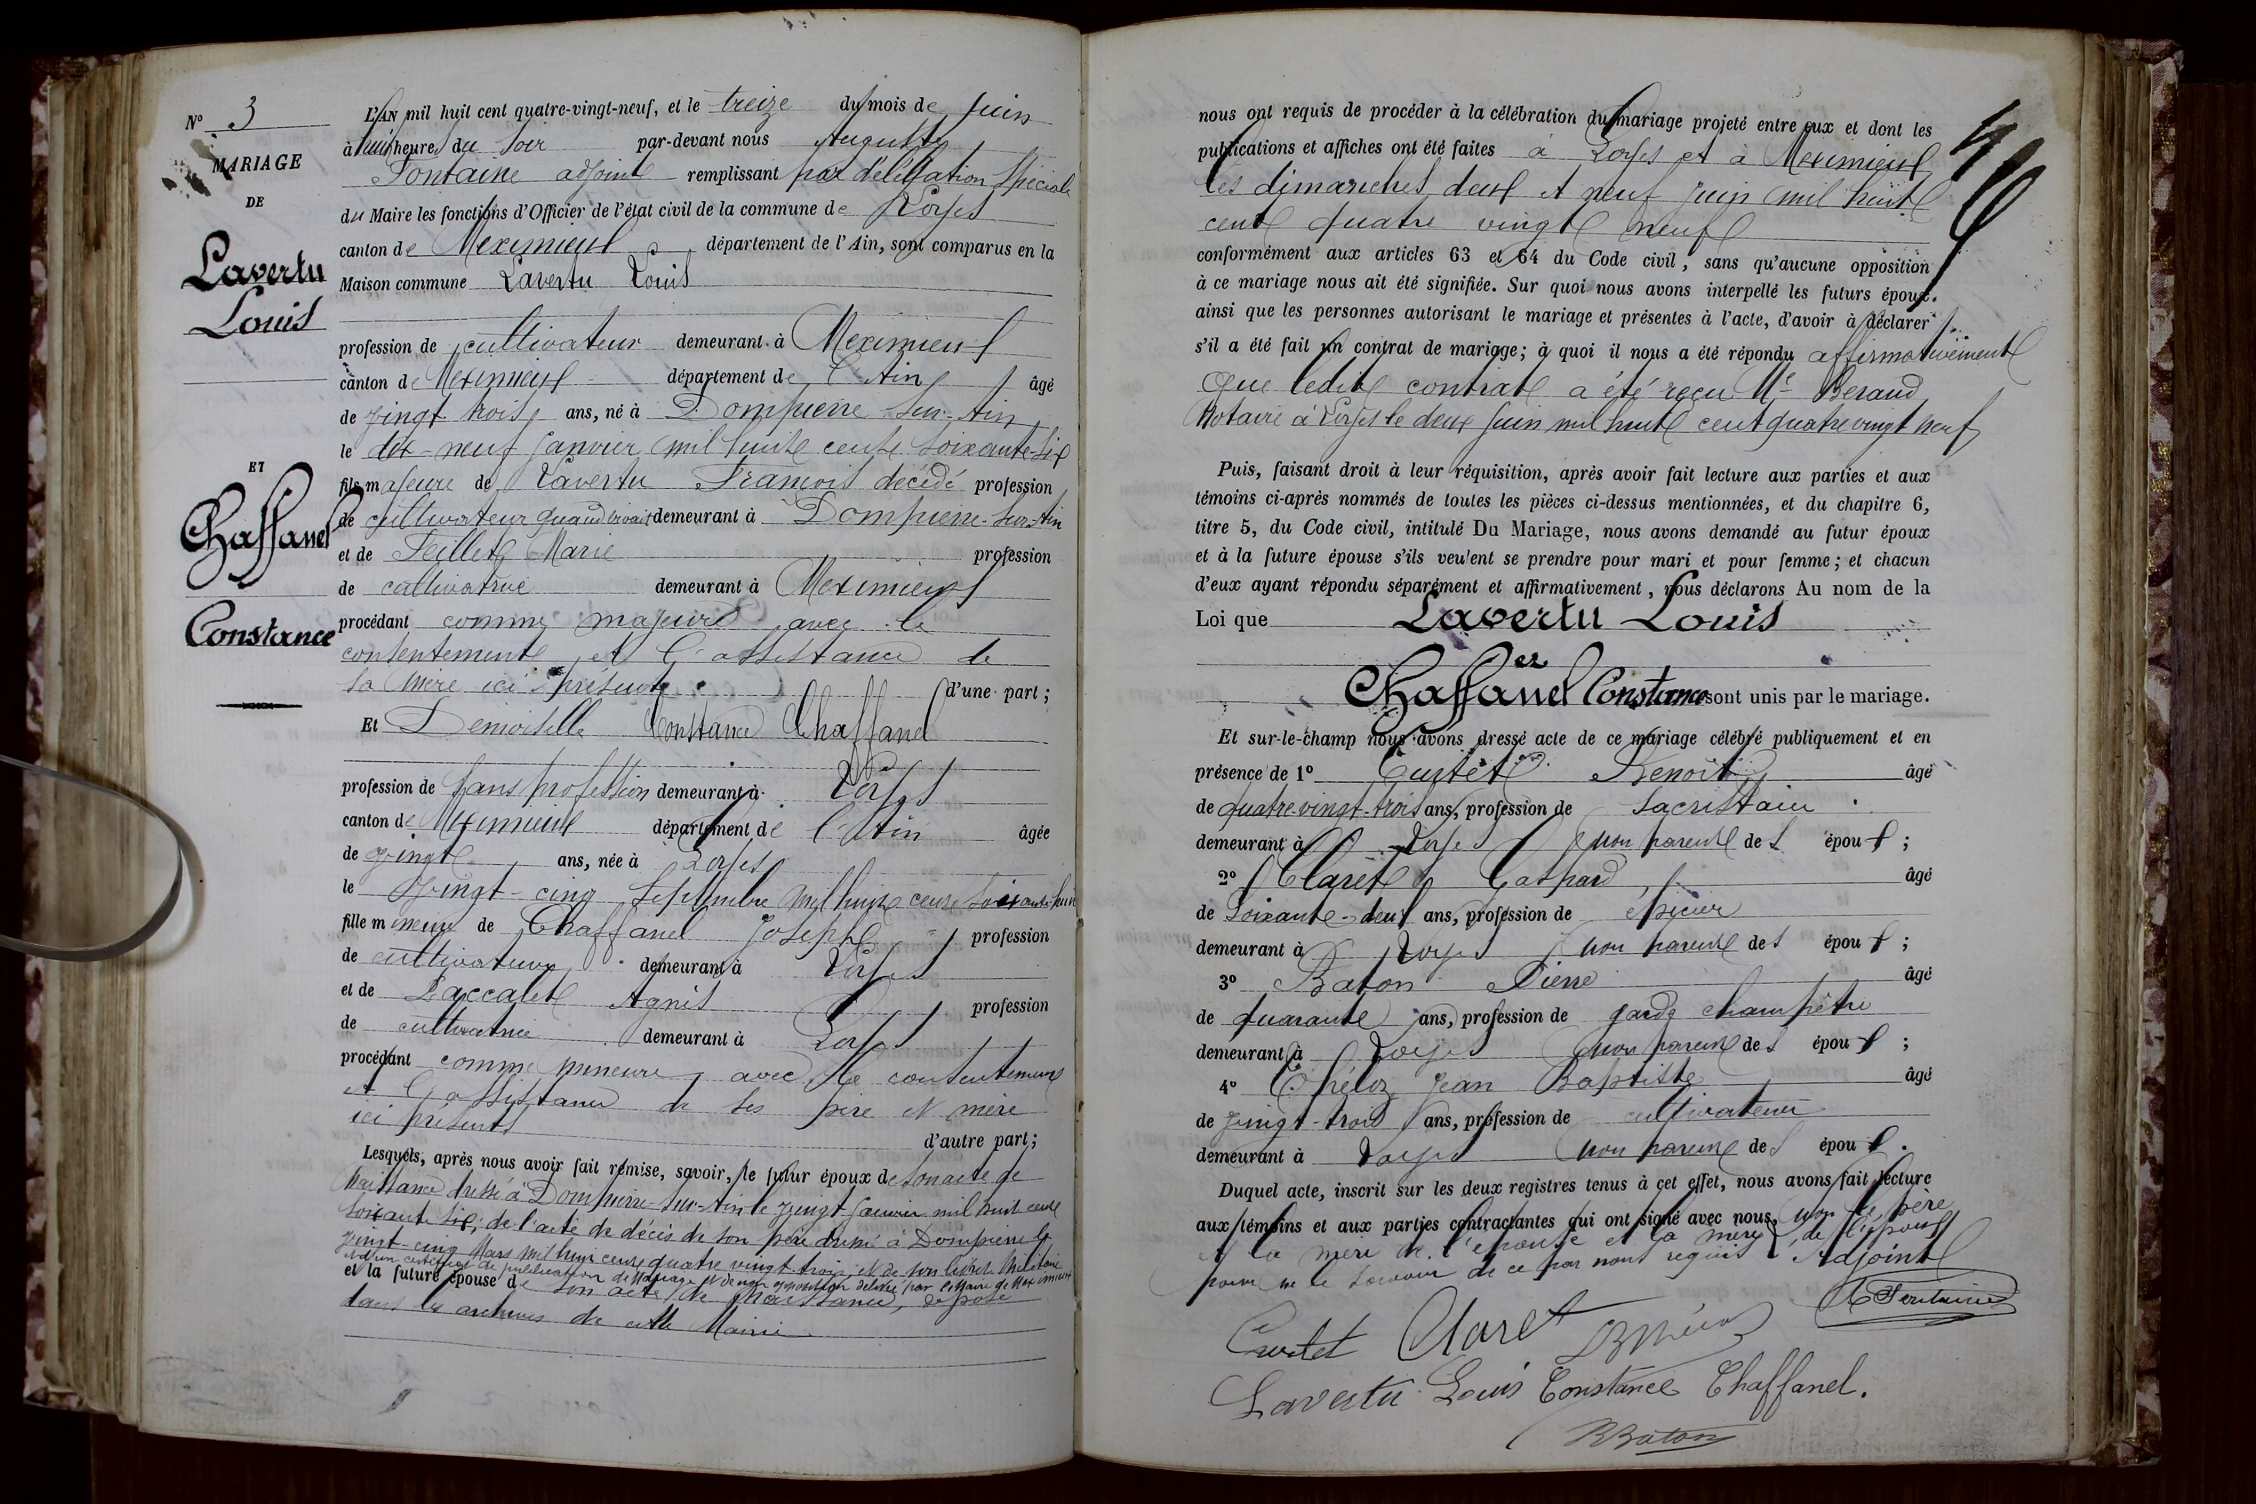 N° 3
MARIAGE
DE
Lavertu
Louis
ET
Chaffanel
Constance
L'AN mil huit cent quatre-vingt-neuf, et le treize du mois de Juin
à huit heures du Soir par-devant nous Auguste
Fontaine adjoint remplissant par délégation Spéciale
du Maire les fonctions d'Officier de l'état civil de la commune de Loyes
canton de Meximieux, département de l'Ain, sont comparus en la
Maison commune Lavertu Louis
profession de cultivateur demeurant à Meximieux
canton de Meximieux département de l'Ain âgé
de vingt trois ans, né à Dompierre sur-Ain
le dix-neuf Janvier mil huit cent soixante-six
fils majeure de Lavertu François décédé profession
de cultivateur quand vivait demeurant à Dompierre-sur-Ain
et de Feillet Marie profession
de cultivatrice demeurant à Meximieux
procédant comme majeure avec le
consentement et l'assistance de
sa mère ici présente d'une part;
Et Demoiselle Constance Chaffanel
profession de sans profession demeurant à Loyes
canton de Meximieux département de l'Ain âgée
de vingt ans, née à Loyes
le Vingt-cinq Septembre mil huit cent soixante-huit
fille mineure de Chaffanel Joseph profession
de cultivateur demeurant à Loyes
et de Laccalet Agnès profession
de cultivatrice demeurant à Loyes
procédant comme mineure avec le consentement
et l'assistance de ses père et mère
ici présents d'autre part;
Lesquels, après nous avoir fait remise, savoir, le futur époux de son acte de
Naissance dressé à Dompierre-sur-Ain le vingt Janvier mil huit cent
soixante six; de l'acte de décès de son père dressé à Dompierre le
vingt-cinq Mars mil huit cent quatre vingt trois, et de son livret Militaire
et d'un certificat de publication de Mariage et de non opposition délivré par le Maire de Meximieux
et la future épouse de son acte de Naissance, déposé
dans les archives de cette Mairie
nous ont requis de procéder à la célébration du mariage projeté entre eux et dont les
publications et affiches ont été faites à Loyes et à Meximieux
les dimanches deux et neuf juin mil huit
cent quatre vingt neuf
conformément aux articles 63 et 64 du Code civil, sans qu'aucune opposition
à ce mariage nous ait été signifiée. Sur quoi nous avons interpellé les futurs époux.
ainsi que les personnes autorisant le mariage et présentes à l'acte, d'avoir à déclarer
s'il a été fait un contrat de mariage; à quoi il nous a été répondu affirmativement
que ledit contrat a été reçu Me Beraud
Notaire à Loyes le deux Juin mil huit cent quatre vingt neuf
Puis, faisant droit à leur réquisition, après avoir fait lecture aux parties et aux
témoins ci-après nommés de toutes les pièces ci-dessus mentionnées, et du chapitre 6,
titre 5, du Code civil, intitulé Du Mariage, nous avons demandé au futur époux
et à la future épouse s'ils veulent se prendre pour mari et pour femme; et chacun
d'eux ayant répondu séparément et affirmativement, nous déclarons Au nom de la
Loi que Lavertu Louis
et
Chaffanel Constance sont unis par le mariage.
Et sur-le-champ nous avons dressé acte de ce mariage célébré publiquement et en
présence de 1° Curtet Benoît âgé
de quatre vingt-trois ans, profession de Sacristain
demeurant à Loyes non parent des époux;
2° Claret Gaspard âgé
de soixante-deux ans, profession de épicier
demeurant à Loyes non parent des époux;
3° Baton Pierre âgé
de quarante ans, profession de garde champêtre
demeurant à Loyes non parent des époux;
4° Jean Baptiste âgé
de vingt-trois ans, profession de cultivateur
demeurant à Loyes non parent des époux.
Duquel acte, inscrit sur les deux registres tenus à cet effet, nous avons fait lecture
aux témoins et aux parties contractantes qui ont signé avec nous, non le père
et la mère de l'épouse et la mère de l'époux
pour ne le savoir de ce par nous requis Adjoint
Curtet Claret A Fontaine
Lavertu Louis Constance Chaffanel.
Baton